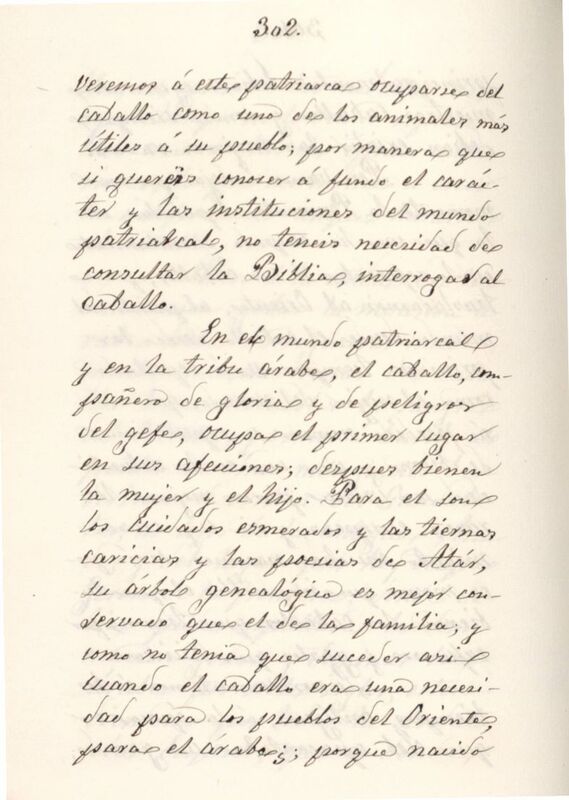 302.
veremos á este patriarca ocuparse del
caballo como uno de los animales más
útiles á su pueblo; por manera que
si quereis conocer á fundo el carác-
ter y las instituciones del mundo
patriarcal, no teneis necesidad de
consultar la Biblia, interrogad al
caballo.
En el mundo patriarcal
y en la tribu árabe, el caballo, com-
pañero de gloria y de peligros
del gefe, ocupa el primer lugar
en sus afecciones; despues bienen
la mujer y el hijo. Para el son
los cuidados esmerados y las tiernas
caricias y las poesias de Atár,
su árbol genealógico es mejor con-
servado que el de la familia; y
como no tenia que suceder asi
cuando el caballo era una necesi-
dad para los pueblos del Oriente,
para el árabe; porque nacido